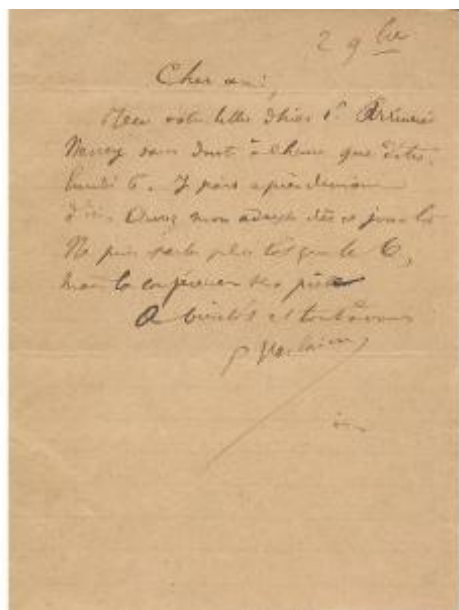 2 9bre
Cher ami,
Reçu votre lettre d'hier 1er. Arriverai
Nancy sans doute à l'heure que dites,
lundi 6. J'y pars après demain
d'ici. Aurez mon adresse dès ce jour là
Ne puis partir plus tôt que le 6,
mais la conférence sera prête
A bientôt et tout à vous
P Verlaine